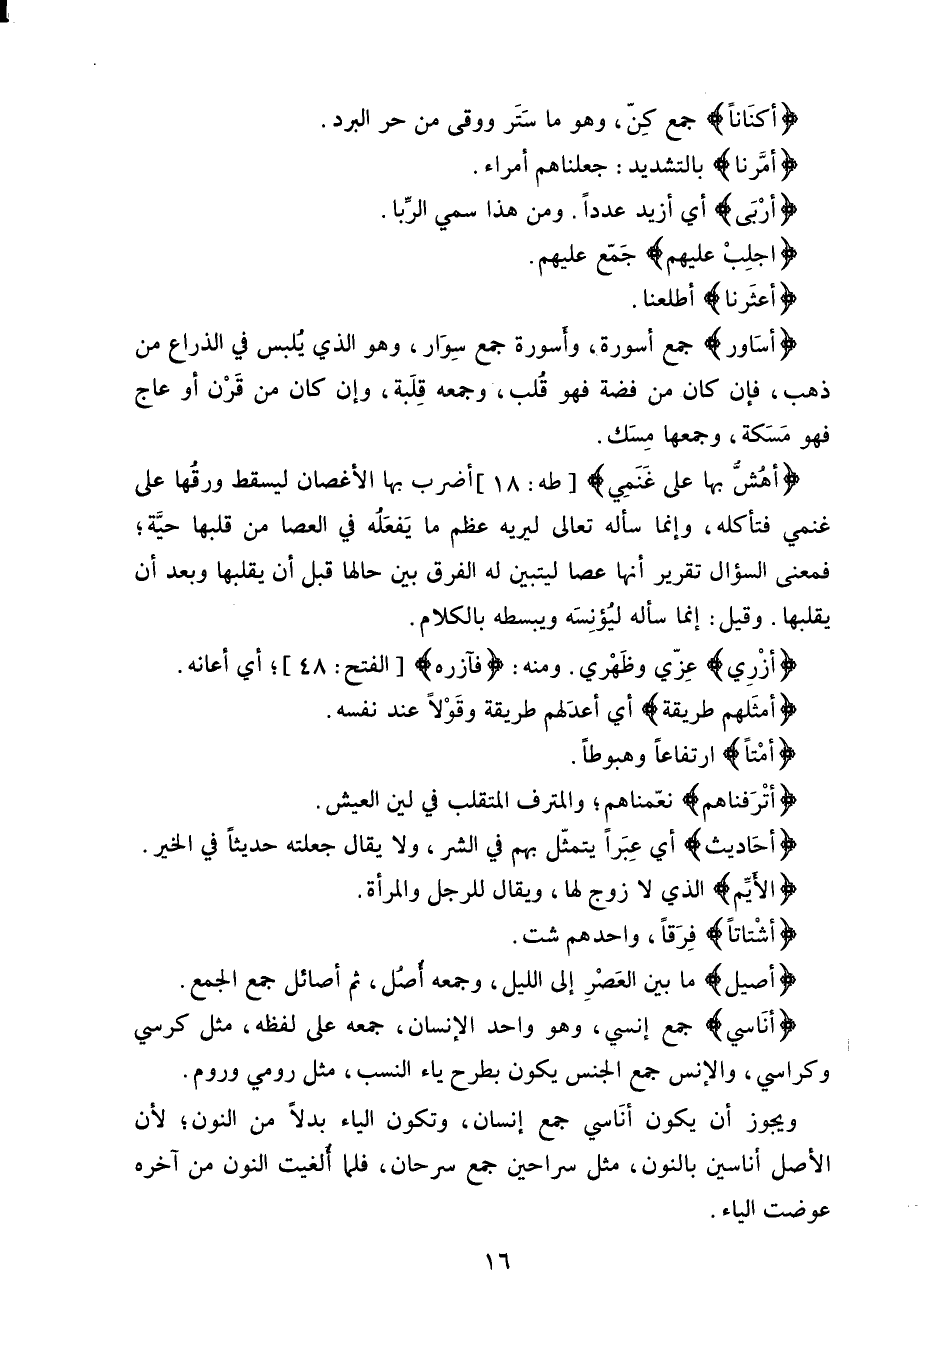 ﴿أكنَاناً﴾ جمع كِنّ، وهو ما سَتَر ووقى من حر البرد.
﴿أمَّرنا﴾ بالتشديد: جعلناهم أمراء.
﴿أرْبَى﴾ أي أزيد عدداً. ومن هذا سمي الرِّبا.
﴿اجلِبْ عليهم﴾ جَمّع عليهم.
﴿أعثَرنا﴾ أطلعنا.
﴿أسَاور﴾ جمع أسورة، وأَسورة جمع سِوَار، وهو الذي يُلبس في الذراع من
ذهب، فإن كان من فضة فهو قُلب، وجمعه قِلَبة، وإن كان من قَرْن أو عاج
فهو مَسَكة، وجمعها مِسَك.
﴿أهُشُّ بها على غَنَمِي﴾ [طه: ١٨] أضرب بها الأغصان ليسقط ورقُها على
غنمي فتأكله، وإنما سأله تعالى ليريه عظم ما يَفعَلُه في العصا من قلبها حيَّة؛
فمعنى السؤال تقرير أنها عصا ليتبين له الفرق بين حالها قبل أن يقلبها وبعد أن
يقلبها. وقيل: إنما سأله ليُؤنِسَه ويبسطه بالكلام.
﴿أزْرِي﴾ عِزّي وظَهْري. ومنه: ﴿فآزره﴾ [الفتح: ٤٨]؛ أي أعانه.
﴿أمثَلهم طريقة﴾ أي أعدَلهم طريقة وقَوْلاً عند نفسه.
﴿أمْتاً﴾ ارتفاعاً وهبوطاً.
﴿أتْرَفناهم﴾ نعّمناهم؛ والمترف المتقلب في لين العيش.
﴿أحَاديث﴾ أي عِبَراً يتمثّل بهم في الشر، ولا يقال جعلته حديثاً في الخير.
﴿الأَيِّم﴾ الذي لا زوج لها، ويقال للرجل والمرأة.
﴿أشْتاتاً﴾ فِرَقاً، واحدهم شت.
﴿أصيل﴾ ما بين العَصْرِ إلى الليل، وجمعه أُصُل، ثم أصائل جمع الجمع.
﴿أنَاسي﴾ جمع إنسي، وهو واحد الإنسان، جمعه على لفظه، مثل كرسي
وكراسي، والإنس جمع الجنس يكون بطرح ياء النسب، مثل رومي وروم.
ويجوز أن يكون أنَاسي جمع إنسان، وتكون الياء بدلاً من النون؛ لأن
الأصل أناسين بالنون، مثل سراحين جمع سرحان، فلما أُلغيت النون من آخره
عوضت الياء.
١٦